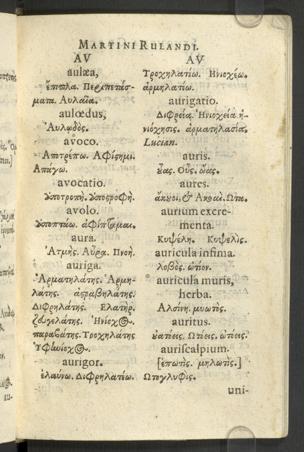 MARTINI RULANDI.
AV
aulæa,
ἔπιπλα. Περιπετάσ-
ματα. Αυλαῖα.
aulœdus,
Αυλῳδὸς.
avoco.
Αποτρέπω. Αφίσημι.
Απάγω.
avocatio.
ὑποτροπὴ. ὑποστροφὴ.
avolo.
ὑποπτάω. ἀφίπταμαι.
aura.
Ατμὴς. Αὖρα. Πνοὴ.
auriga.
Αρματηλάτης. Αρμη-
λάτης. ἀστραβηλάτης.
Διφρηλάτης. Ελατὴρ.
ζευγελάτης. Ηνίοχος.
παραβάτης. Τροχηλάτης
Υφηνίοχος.
aurigor.
ἐλαύνω. Διφρηλατέω.
AV
Τροχηλατέω. Ηνιοχέω.
ἁρμηλατέω.
aurigatio.
Διφρεία. Ηνιοχεία ἡ-
νιόχησις. ἁρματηλασία,
Lucian.
auris.
γας. Οὖς. ὦας.
aures.
ἀκοαὶ. & Ακοαὶ. Ωτα.
aurium excre-
menta.
Κυψέλη. Κυψελὶς.
auricula infima.
λοβὸς. ὠτίον.
auricula muris,
herba.
Αλσίνη. μυωτὶς.
auritus.
γατόεις. Ωτόεις. ὠτίεις.
auriscalpium.
[ἐπωτὶς. μηλωτὶς.]
Ωτογλυφὶς.
uni-